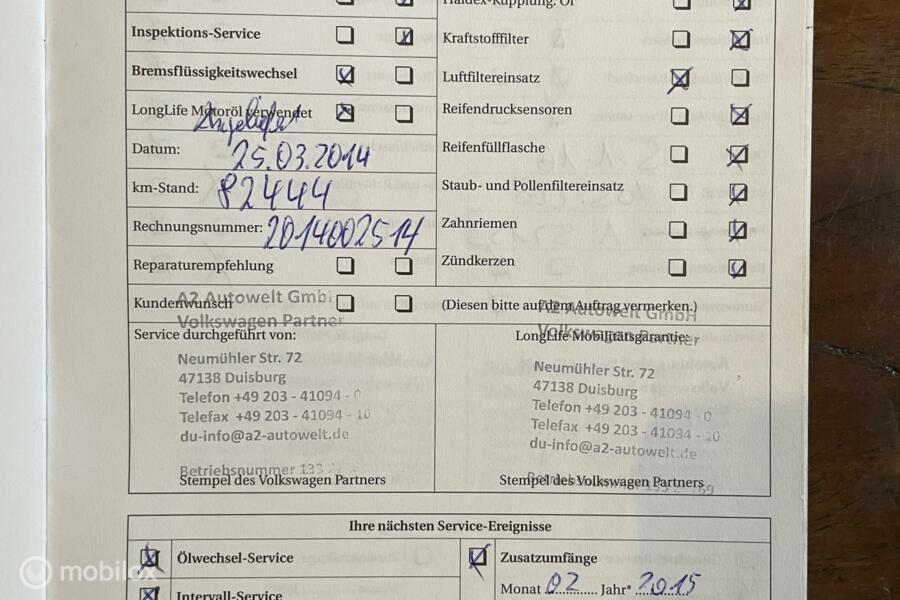 Haldex-Kupplung: Öl
Inspektions-Service
Kraftstofffilter
Bremsflüssigkeitswechsel
Luftfiltereinsatz
LongLife Motoröl verwendet
Angeliefert
Reifendrucksensoren
Datum: 25.03.2014
Reifenfüllflasche
km-Stand: 82444
Staub- und Pollenfiltereinsatz
Rechnungsnummer: 2014002514
Zahnriemen
Reparaturempfehlung
Zündkerzen
Kundenwunsch
(Diesen bitte auf dem Auftrag vermerken.)
A2 Autowelt GmbH
Volkswagen Partner
Service durchgeführt von:
Neumühler Str. 72
47138 Duisburg
Telefon +49 203 - 41094 - 0
Telefax +49 203 - 41094 - 10
du-info@a2-autowelt.de
Betriebsnummer 133
Stempel des Volkswagen Partners
A2 Autowelt GmbH
Volkswagen Partner
LongLife Mobilitätsgarantie:
Neumühler Str. 72
47138 Duisburg
Telefon +49 203 - 41094 - 0
Telefax +49 203 - 41094 - 10
du-info@a2-autowelt.de
Stempel des Volkswagen Partners
Ihre nächsten Service-Ereignisse
Ölwechsel-Service
Zusatzumfänge
Intervall-Service
Monat 02 Jahr* 2015
mobilox